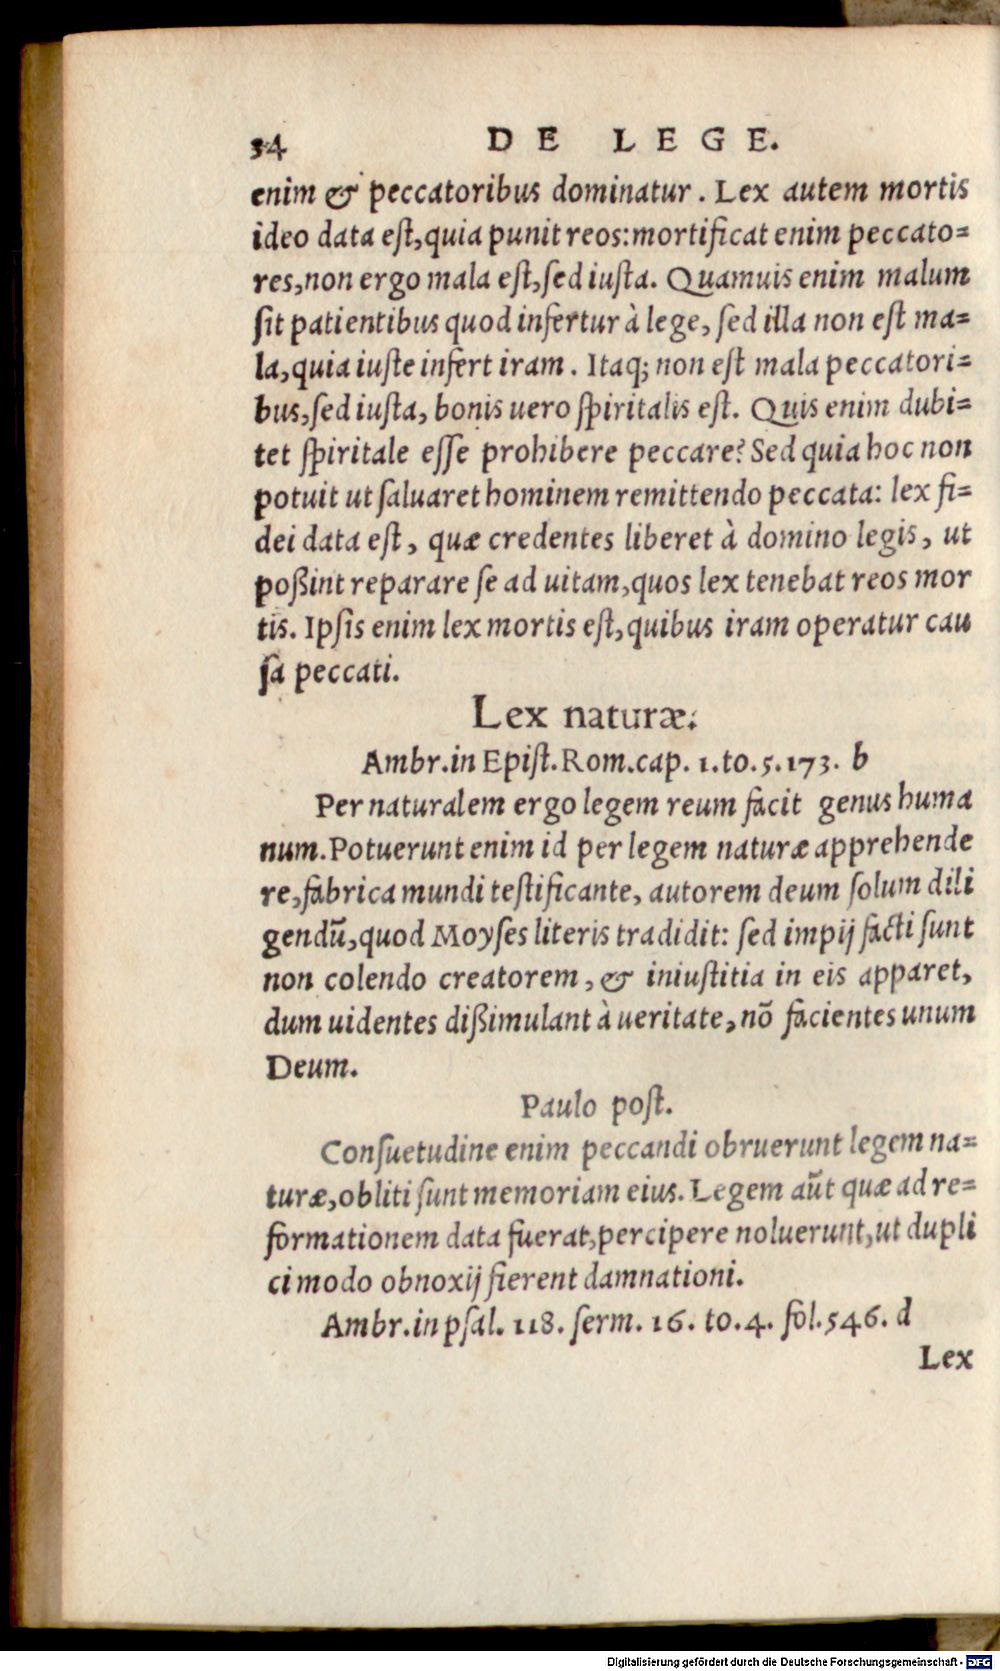 34 DE LEGE.
enim & peccatoribus dominatur. Lex autem mortis
ideo data eſt, quia punit reos: mortificat enim peccato=
res, non ergo mala eſt, ſed iuſta. Quamuis enim malum
ſit patientibus quod infertur à lege, ſed illa non eſt ma=
la, quia iuſte infert iram. Itaq; non eſt mala peccatori=
bus, ſed iuſta, bonis uero ſpiritalis eſt. Quis enim dubi=
tet ſpiritale eſſe prohibere peccare? Sed quia hoc non
potuit ut ſaluaret hominem remittendo peccata: lex fi=
dei data eſt, quæ credentes liberet à domino legis, ut
poßint reparare ſe ad uitam, quos lex tenebat reos mor
tis. Ipſis enim lex mortis eſt, quibus iram operatur cau
ſa peccati.
Lex naturæ.
Ambr. in Epiſt. Rom. cap. 1. to. 5. 173. b
Per naturalem ergo legem reum facit genus huma
num. Potuerunt enim id per legem naturæ apprehende
re, fabrica mundi teſtificante, autorem deum ſolum dili
gendũ, quod Moyſes literis tradidit: ſed impij facti ſunt
non colendo creatorem, & iniuſtitia in eis apparet,
dum uidentes dißimulant à ueritate, nõ facientes unum
Deum.
Paulo poſt.
Conſuetudine enim peccandi obruerunt legem na=
turæ, obliti ſunt memoriam eius. Legem aũt quæ ad re=
formationem data fuerat, percipere noluerunt, ut dupli
ci modo obnoxij fierent damnationi.
Ambr. in pſal. 118. ſerm. 16. to. 4. fol. 546. d
Lex
Digitalisierung gefördert durch die Deutsche Forschungsgemeinschaft - DFG